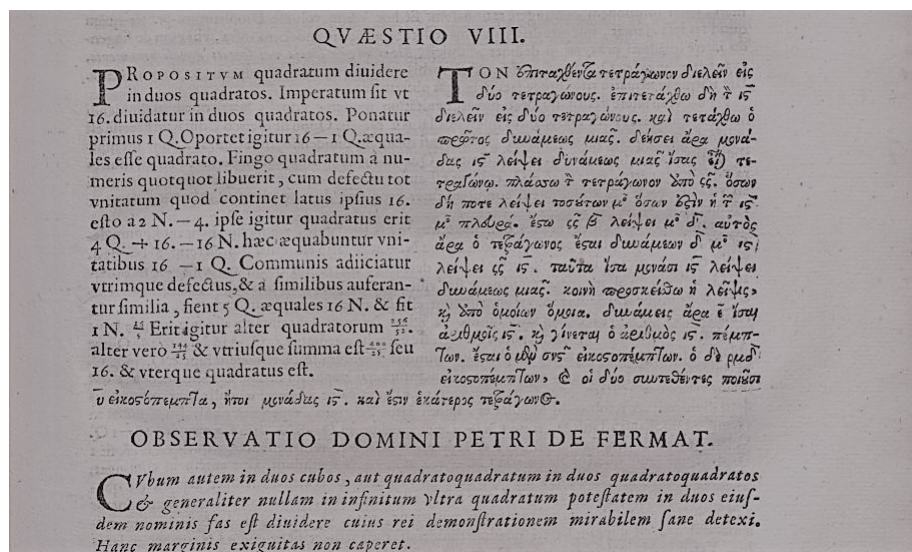 QVÆSTIO VIII.
PROPOSITVM quadratum diuidere
in duos quadratos. Imperatum sit vt
16. diuidatur in duos quadratos. Ponatur
primus 1 Q. Oportet igitur 16 − 1 Q. æqua-
les esse quadrato. Fingo quadratum à nu-
meris quotquot libuerit, cum defectu tot
vnitatum quod continet latus ipsius 16.
esto a 2 N. − 4. ipse igitur quadratus erit
4 Q. + 16. − 16 N. hæc æquabuntur vni-
tatibus 16 − 1 Q. Communis adiiciatur
vtrimque defectus, & à similibus auferan-
tur similia, fient 5 Q. æquales 16 N. & fit
1 N. 16/5 Erit igitur alter quadratorum 256/25.
alter vero 144/25 & vtriusque summa est 400/25 seu
16. & vterque quadratus est.
ΤΟΝ ἐπιταχθέντα τετράγωνον διελεῖν εἰς
δύο τετραγώνους. ἐπιτετάχθω δὴ τὸν ις
διελεῖν εἰς δύο τετραγώνους. καὶ τετάχθω ὁ
πρῶτος δυνάμεως μιᾶς. δεήσει ἄρα μονά-
δας ις λείψει δυνάμεως μιᾶς ἴσας εἶναι τε-
τραγώνῳ. πλάσσω τὸν τετράγωνον ἀπὸ ςς. ὅσων
δή ποτε λείψει τοσούτων μο ὅσων ἐστὶν ἡ τῶν ις
μο πλευρά. ἔστω ςς β λείψει μο δ. αὐτὸς
ἄρα ὁ τετράγωνος ἔσται δυνάμεων δ μο ις
λείψει ςς ις. ταῦτα ἴσα μονάσι ις λείψει
δυνάμεως μιᾶς. κοινὴ προσκείσθω ἡ λεῖψις,
καὶ ἀπὸ ὁμοίων ὅμοια. δυνάμεις ἄρα ε ἴσαι
ἀριθμοῖς ις. καὶ γίνεται ὁ ἀριθμὸς ις. πέμπ-
των. ἔσται ὁ μὲν σνς εἰκοστοπέμπτων. ὁ δὲ ρμδ
εἰκοστοπέμπτων, καὶ οἱ δύο συντεθέντες ποιοῦσι
υ εἰκοστόπεμπτα, ἤτοι μονάδας ις. καὶ ἔστιν ἑκάτερος τετράγωνος.
OBSERVATIO DOMINI PETRI DE FERMAT.
CVbum autem in duos cubos, aut quadratoquadratum in duos quadratoquadratos
& generaliter nullam in infinitum vltra quadratum potestatem in duos eius-
dem nominis fas est diuidere cuius rei demonstrationem mirabilem sane detexi.
Hanc marginis exiguitas non caperet.